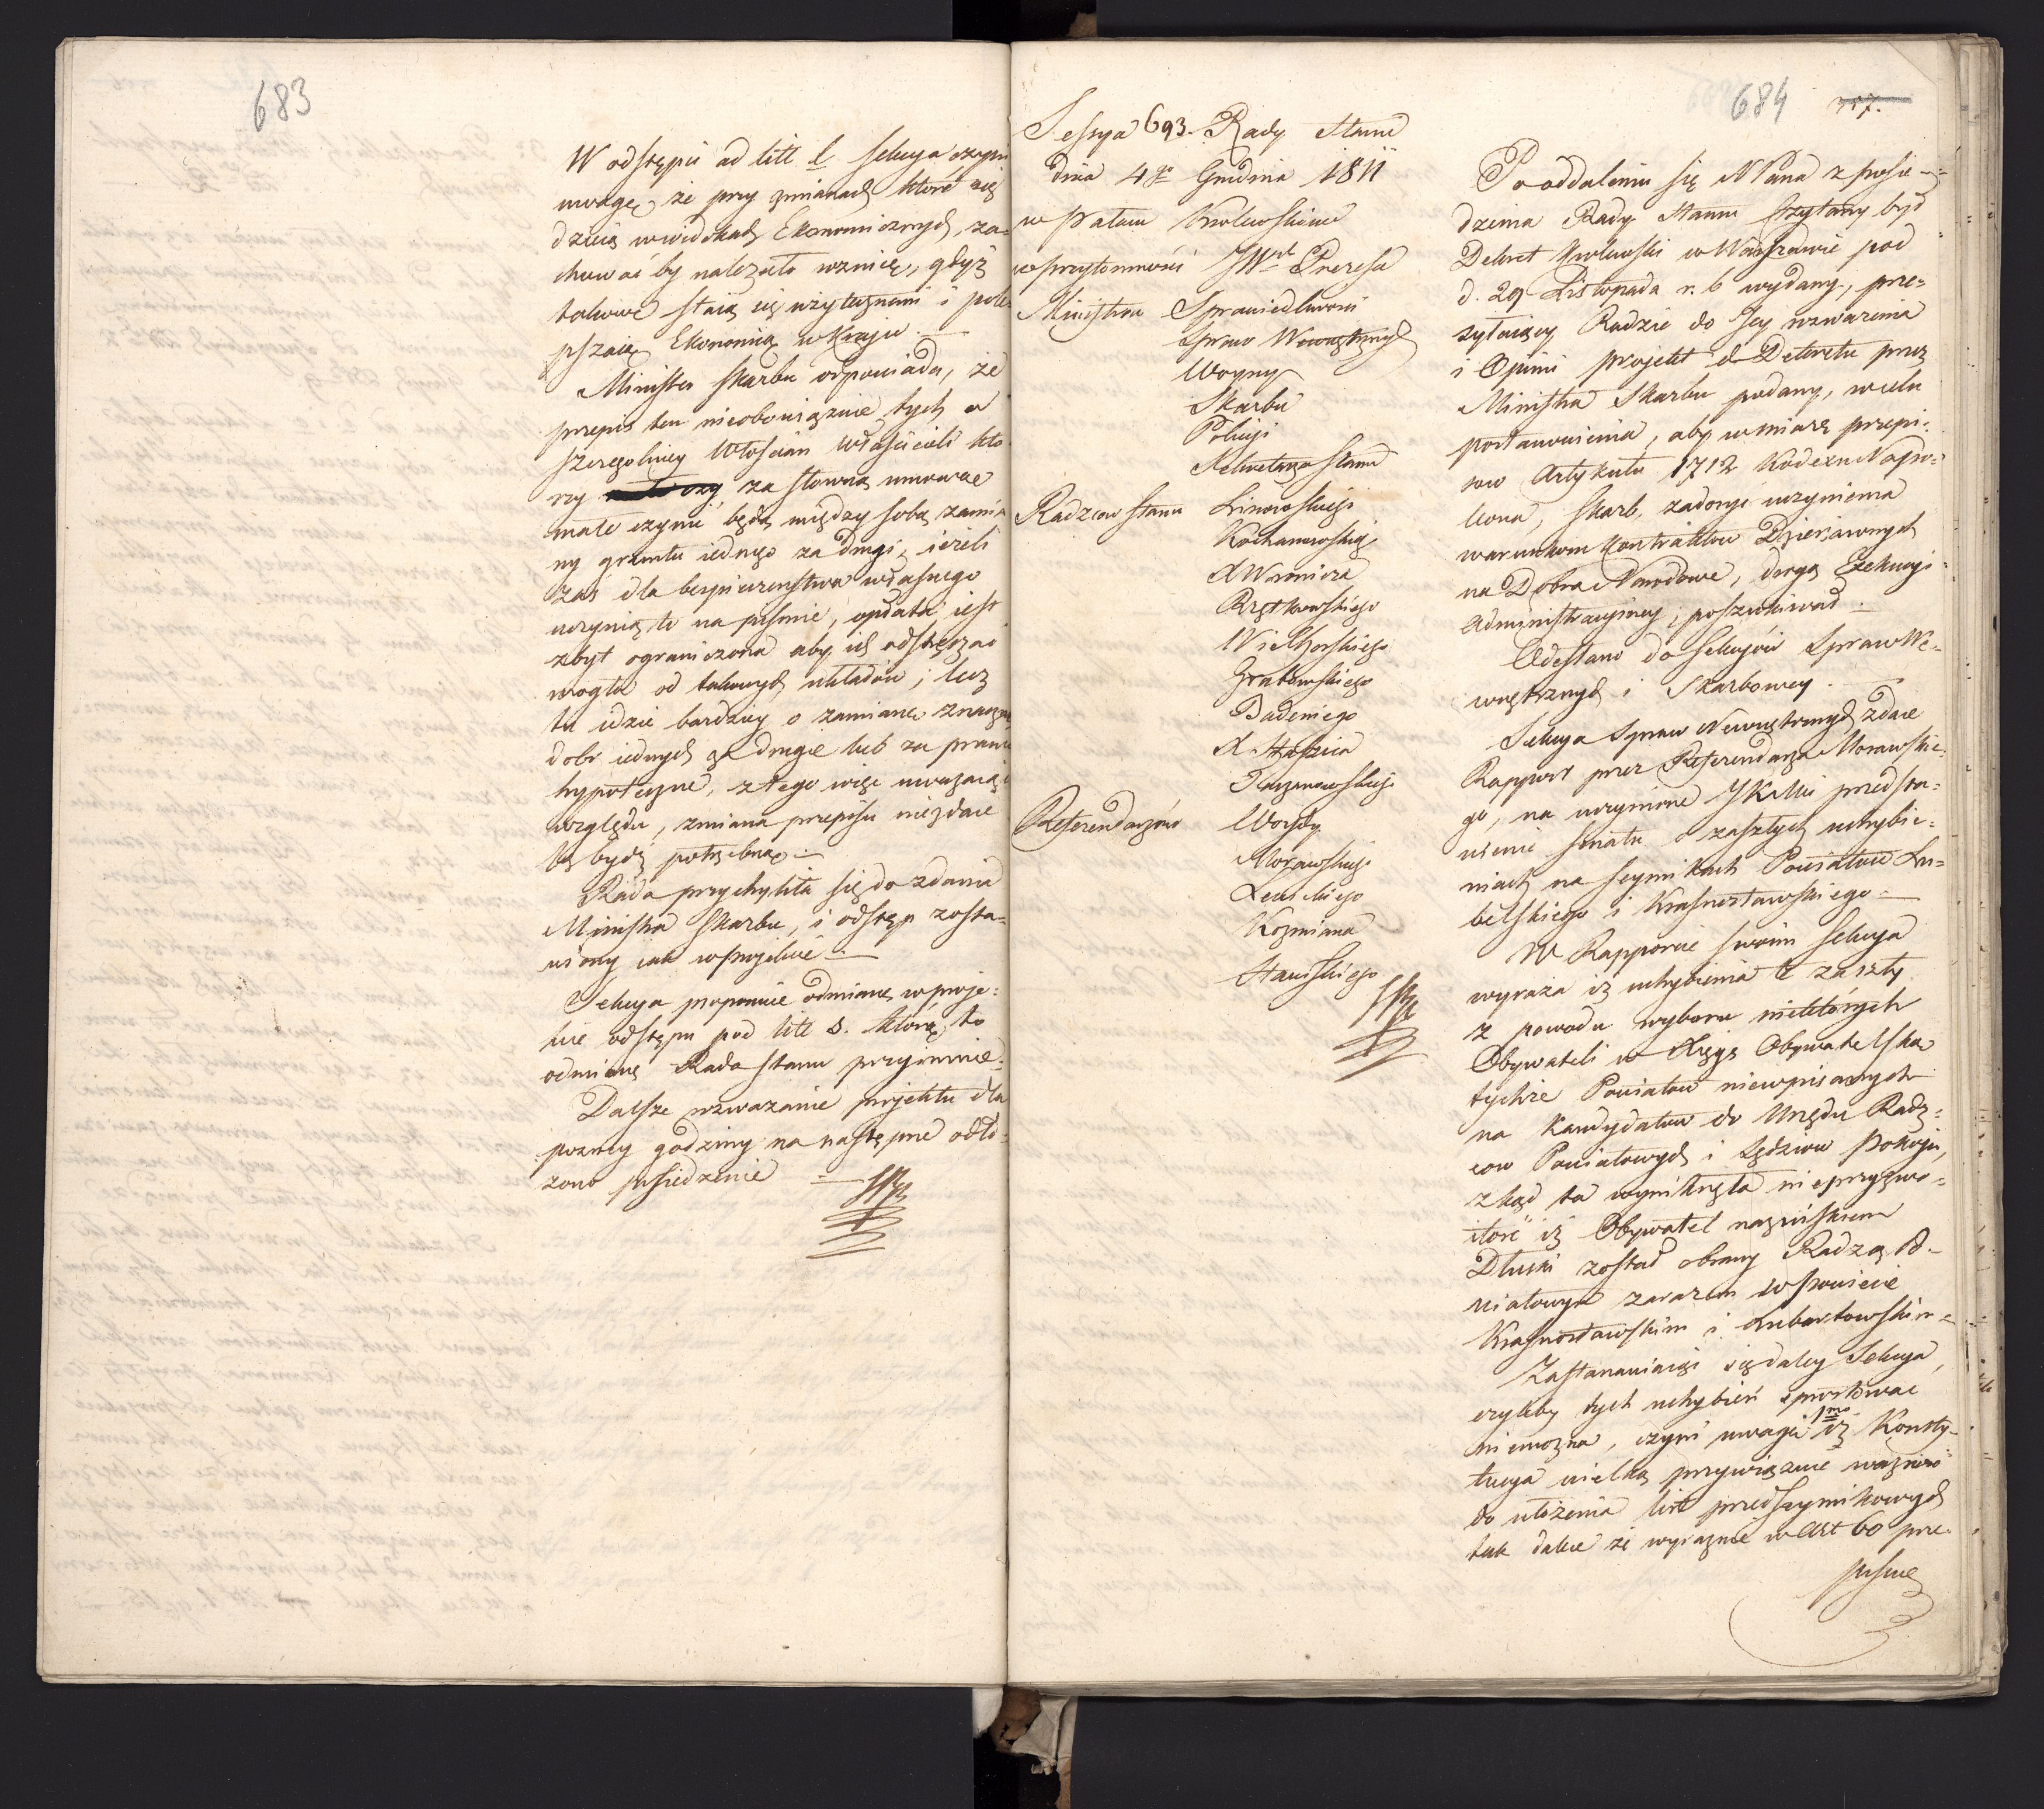 683
W odstępie ad litt l Sekcya czyni
uwagę, że przy zmianach które się
dzieią w widokach Ekonomicznych, za-
chować by należało wzmię, gdyż
takowe staią się użytecznemi i pole-
pszaią Ekonomią w Kraju.
Minister Skarbu odpowiada, że
przepis ten nieobowiązuie tych a
szczególniey Włościan Właścicieli któ
rzy za słowną umowae
małe czynić będą między sobą zamia
ny gruntu iednego za drugi, ieżeli
zaś dla bezpieczenstwa własnego
uczynią to na pismie, opłata iest
zbyt ograniczona aby ich odstręczać
mogła od takowych układów; lecz
tu idzie bardziey o zamianę znaczne
dobr iednych za drugie lub za prawa
hypoteczne, z tego więc uważaiąc
względu, zmiana przepisu niezdaie
się bydź potrzebną.
Rada przychyliła się do zdania
Ministra Skarbu, i odstęp zosta-
wiony iak w projekcie.
Sekcya proponuie odmianę w proje-
kcie odstępu pod litt s. którą to
odmianę Rada Stanu przyimuie.
Dalsze rozważanie projektu dla
pozney godziny na następne odło-
żono posiedzenie
684 317.
Sessya 693. Rady Stanu
dnia 4go Grudnia 1811
w Pałacu Krolewskim
w przytomności JWgo Prezesa
Ministrow Sprawiedliwości
Spraw Wewnętrznych
Woyny
Skarbu
Policyi
Sekretarza Stanu
Radzcow Stanu Linowskiego
Kochanowskiego
X Woronicza
Rzętkowskiego
Wielhorskiego
Grabowskiego
Badeniego
X. Staszica
Referendarzow Woydy
Morawskiego
Lewickiego
Kozmiana
Stawskiego
Po oddaleniu się N Pana z posie-
dzenia Rady Stanu czytany był
Dekret Krolewski w Warszawie pod
d. 29 Listopada r. b wydany, prze-
syłaiący Radzie do Jey rozważenia
i Opinii projekt do Dekretu przez
Ministra Skarbu podany, w celu
postanowienia, aby w miarę przepi-
sow Artykułu 1712 Kodexu Napo-
leona, Skarb, zadosyć uczynienia
warunkom Kontraktow Dzierżawnych
na Dobra Narodowe, drogą Exekucyi
administracyiney, poszukiwał.
Odesłano do Sekcyów Spraw We-
wnętrznych i Skarbowey.
Sekcya Spraw Wewnętrznych zdaie
Rapport przez Referendarza Morawskie-
go, na uczynione JKMci przedsta-
wienie Senatu o zaszłych uchybie-
niach na Seymikach Powiatow Lu-
belskiego i Krasnostawskiego.
W Rapporcie swoim Sekcya
wyraża iż uchybienia te zaszły
z powodu wyboru niektórych
Obywateli w Xięgę Obywatelską
tychże Powiatow niewpisanych
na Kandydatow do Urzędu Radz-
cow Powiatowych i Sędziow Pokoju,
zkąd ta wyniknęła nieprzyzwo-
itość iż Obywatel nazwiskiem
Dłuski został obrany Radzcą Po-
wiatowym zarazem w Powiecie
Krasnostawskim i Lubartowskim.
Zastanawiaiąc się daley Sekcya,
czyliby tych uchybień sprostować
niemożna, czyni uwagi 1mo iż Konsty-
tucya wielką przywiązuie ważność
do ułożenia list przedseymikowych
tak dalece że wyraznie w Art 60 prze-
pisuie